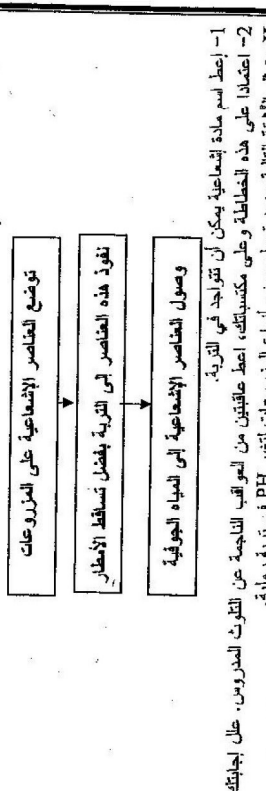 توضع العناصر الإشعاعية على المزروعات
نفوذ هذه العناصر إلى التربة بفضل تساقط الأمطار
وصول العناصر الإشعاعية إلى المياه الجوفية
1- إعط اسم مادة إشعاعية يمكن أن تتواجد في التربة.
2- اعتمادا على هذه الخطاطة و على مكتسباتك، اعط عاقبتين من العواقب الناجمة عن التلوث المدروس. علل إجابتك
PH في تربة